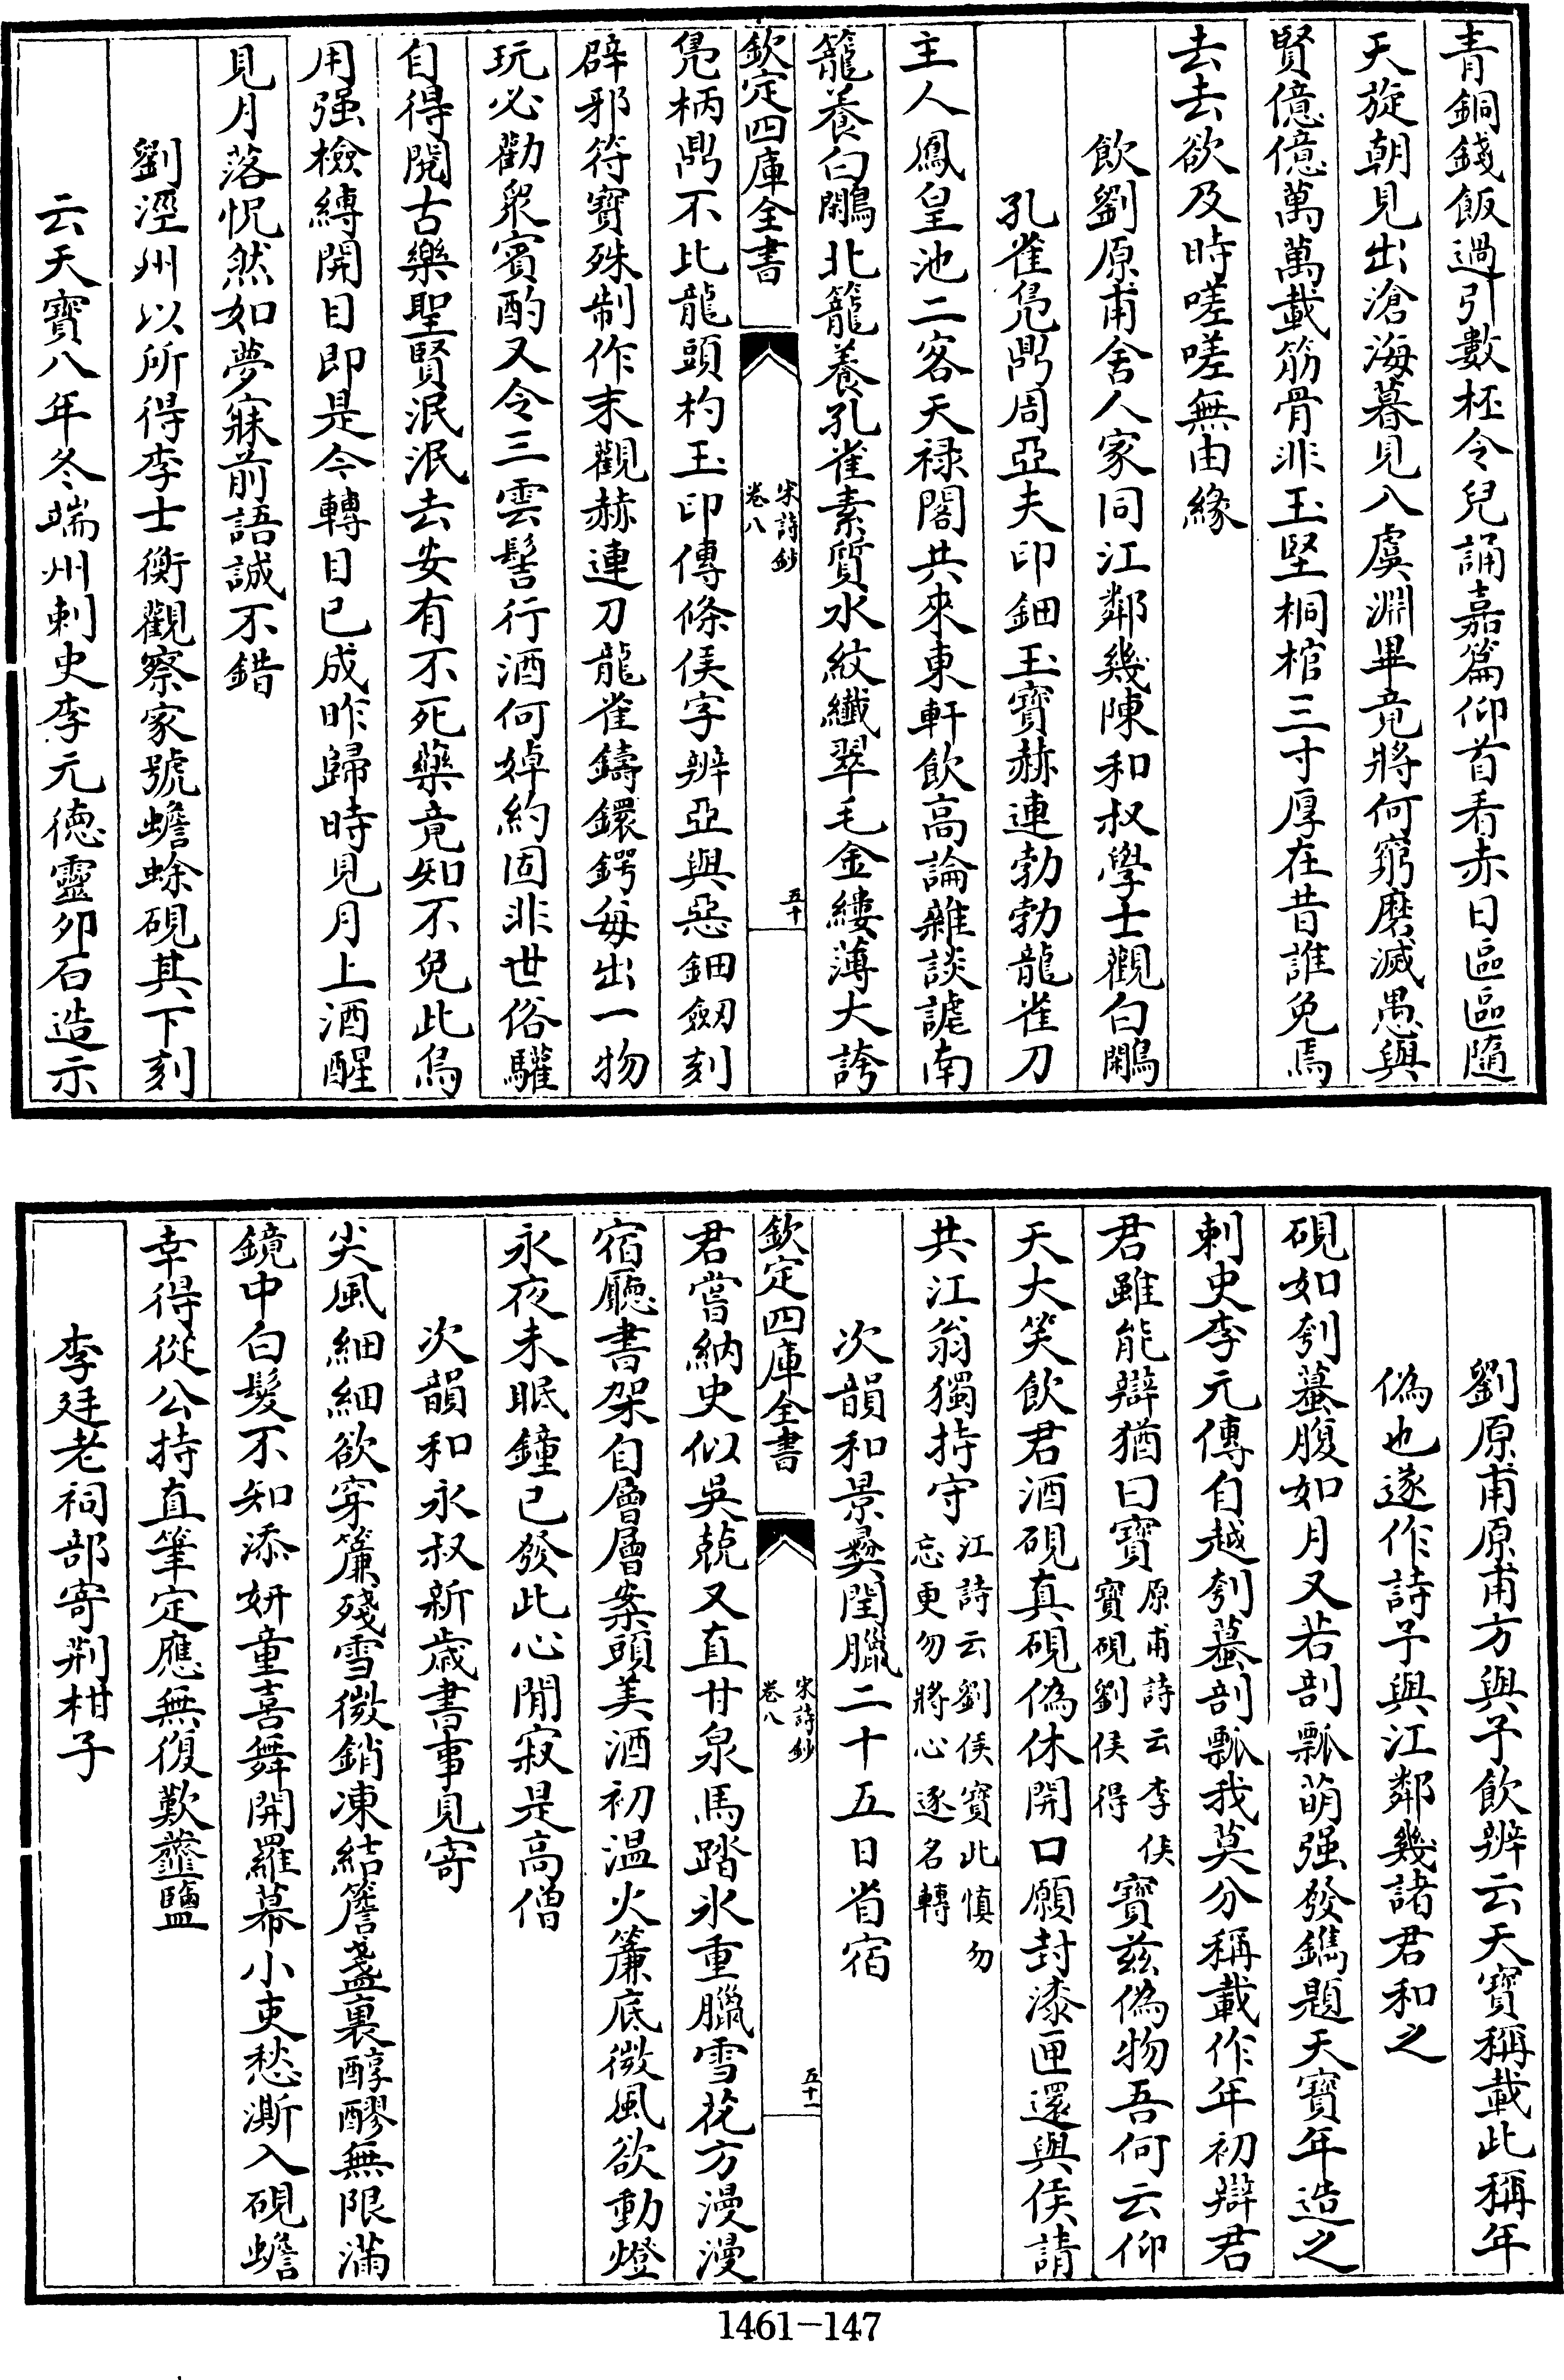 青銅錢飯過引數柸令兒誦嘉篇仰首看赤日區區隨
天旋朝見出滄海暮見入虞淵畢竟將何窮磨滅愚與
賢億億萬萬載筋骨非玉堅桐棺三寸厚在昔誰免焉
去去欲及時嗟嗟無由緣
飲劉原甫舍人家同江鄰幾陳和叔學士觀白鷴
孔雀鳧鼎周亞夫印鈿玉寶赫連勃勃龍雀刀
主人鳳皇池二客天禄閣共來東軒飲高論雜談謔南
籠養白鷴北籠養孔雀素質水紋纖翠毛金縷薄大誇
欽定四庫全書
宋詩鈔
卷八
五十
鳧柄鼎不比龍頭杓玉印傳條侯字辨亞與惡鈿劒刻
辟邪符寶殊制作末觀赫連刀龍雀鑄鐶鍔每出一物
玩必勸衆賓酌又令三雲髻行酒何婥約固非世俗驩
自得閲古樂聖賢泯泯去安有不死藥竟知不免此烏
用强檢縛開目即是今轉目已成昨歸時見月上酒醒
見月落怳然如夢寐前語誠不錯
劉涇州以所得李士衡觀察家號蟾蜍硯其下刻
云天寶八年冬端州刺史李元德靈卯石造示
劉原甫原甫方與予飲辨云天寶稱載此稱年
偽也遂作詩予與江鄰幾諸君和之
硯如刳蟇腹如月又若剖瓢萌强發鐫題天寶年造之
刺史李元傳自越刳蟇剖瓢我莫分稱載作年初辯君
君雖能辯猶曰寶原甫詩云李侯寶硯劉侯得寶兹偽物吾何云仰
天大笑飲君酒硯真硯偽休開口願封漆匣還與侯請
共江翁獨持守江詩云劉侯寶此慎勿忘更勿將心逐名轉
次韻和景彜閏臘二十五日省宿
欽定四庫全書
宋詩鈔
卷八
五十一
君嘗納史似吳兢又直甘泉馬踏氷重臘雪花方漫漫
宿廳書架自層層案頭美酒初温火簾底微風欲動燈
永夜未眠鐘已發此心閒寂是高僧
次韻和永叔新歲書事見寄
尖風細細欲穿簾殘雪微銷凍結簷盞裏醇醪無限滿
鏡中白髮不知添妍童喜舞開羅幕小吏愁澌入硯蟾
幸得從公持直筆定應無復歎虀鹽
李廷老祠部寄荆柑子
1461-147